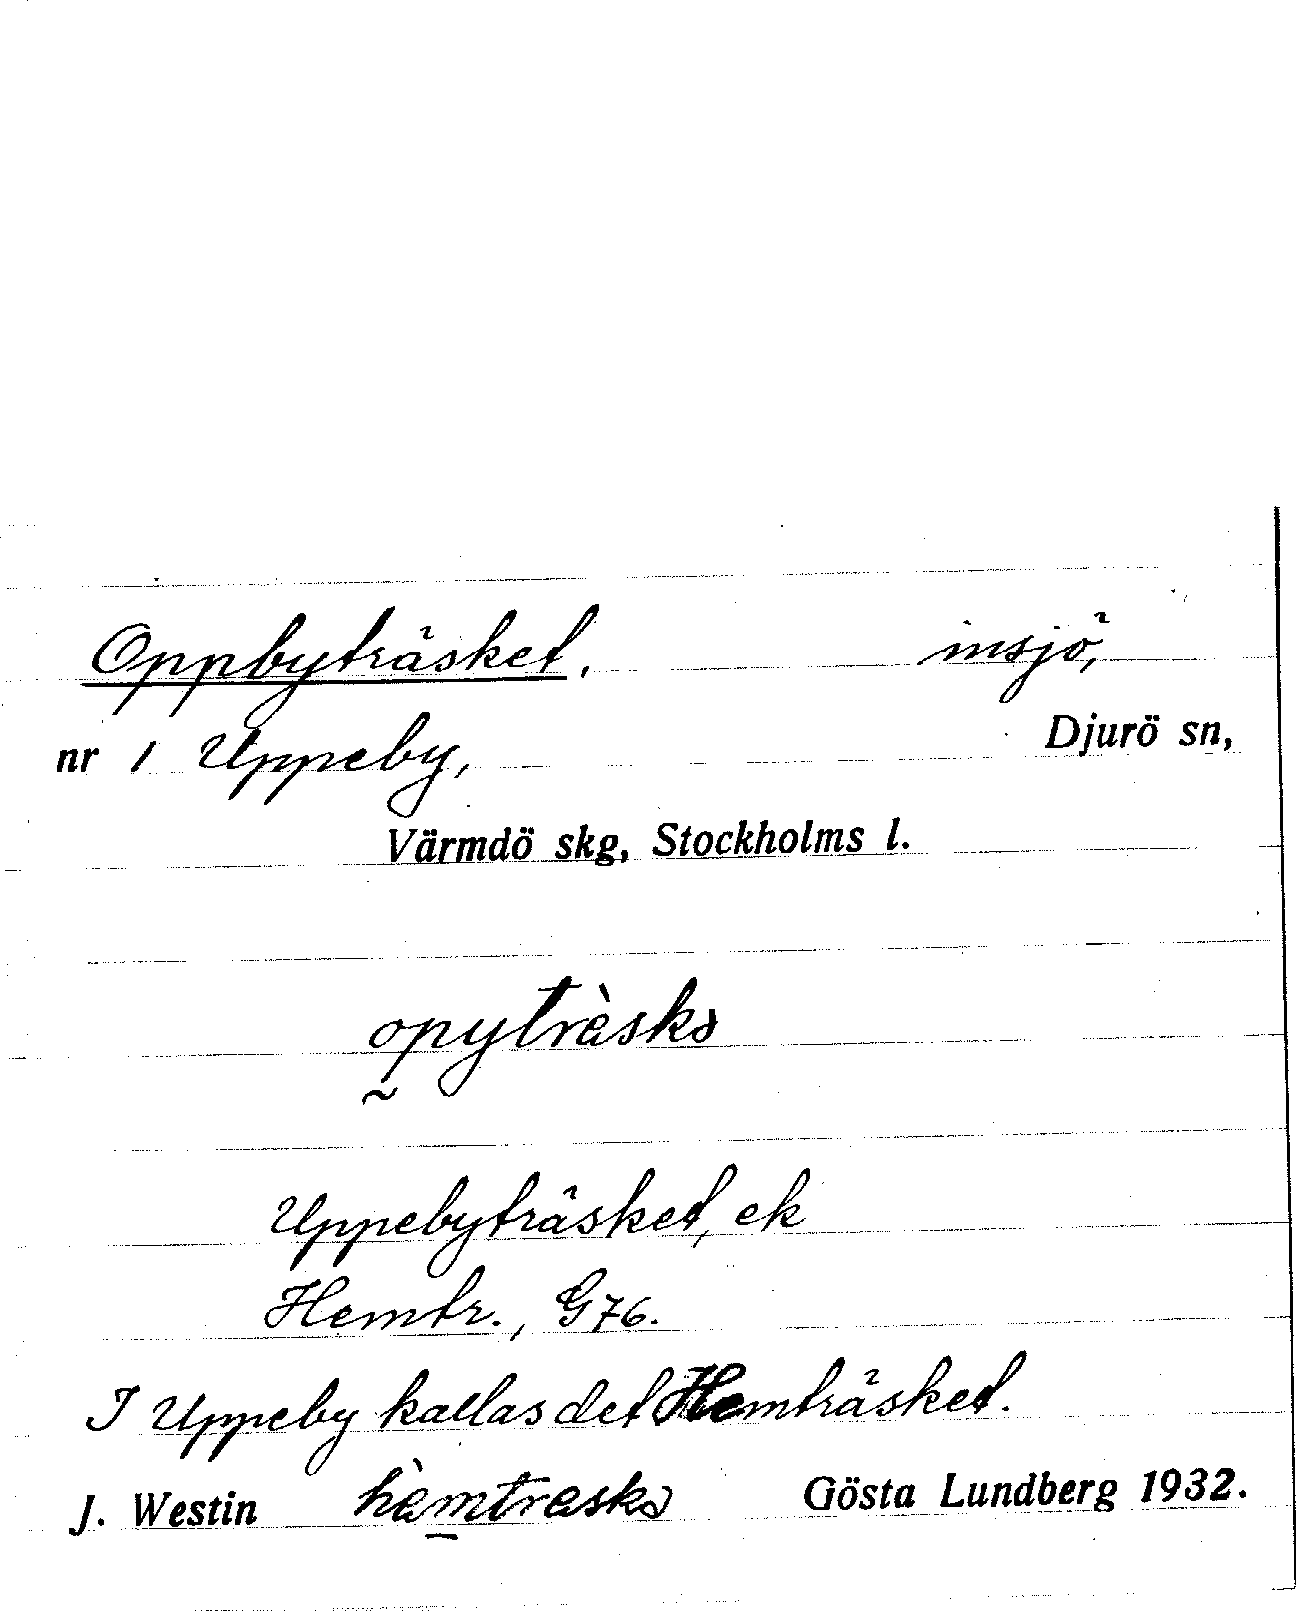 Oppbyträsket. insjö,
nr 1 Uppeby, Djurö sn,
Värmdö skg, Stockholms l.
opyträskə
Uppebyträsket, ek
Hemtr., G76.
I Uppeby kallas det Hemträsket.
J. Westin hèmtræskə Gösta Lundberg 1932.